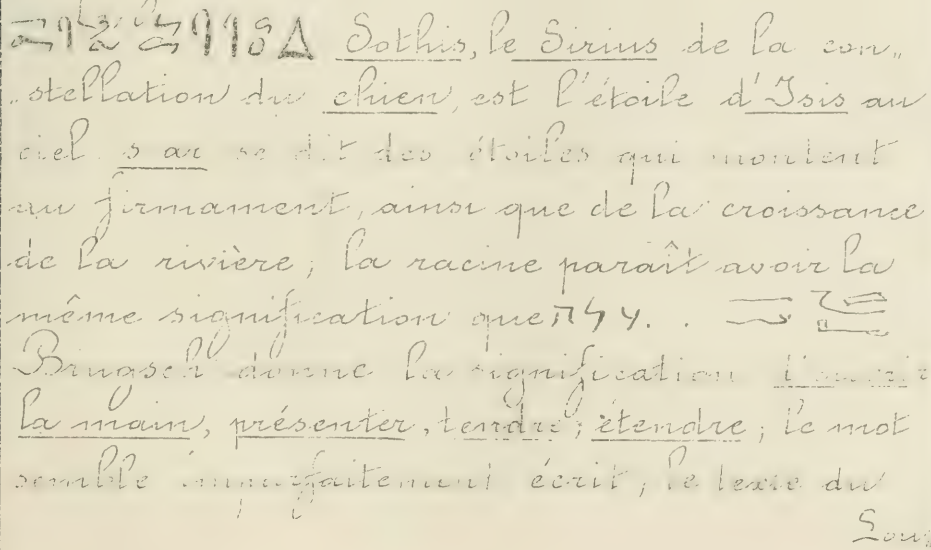 Sothis, le Sirius de la con„
„stellation du chien, est l'étoile d'Isis au
ciel. s ar se dit des étoiles qui montent
au firmament, ainsi que de la croissance
de la rivière; la racine paraît avoir la
même signification que
Brugsch donne la signification
la main, présenter, tendre; étendre; le mot
semble imparfaitement écrit; le texte du